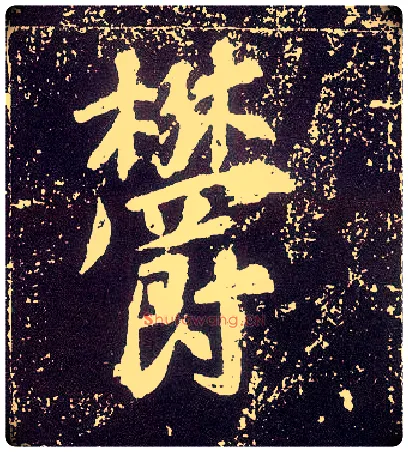 欝
Shufawang.cn